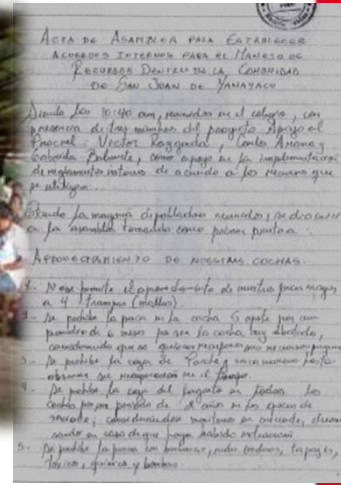 ACTA DE ASAMBLEA PARA ESTABLECER
ACUERDOS INTERNOS PARA EL MANEJO DE
RECURSOS DENTRO DE LA COMUNIDAD
DE SAN JUAN DE YANAYACU
Siendo las 10:40 am, reunidos en el colegio, con
presencia de tres miembros del proyecto Apoyo al
Procrel: Victor Raygada, Carlos
Gabriela, como apoyo en la implementación
de reglamentos internos de acuerdo a los recursos que
se utilizan...
Estando la mayoría de pobladores reunidos, se dio inicio
a la asamblea tomando como primer punto a:
APROVECHAMIENTO DE NUESTRAS COCHAS.
1.- No se permite el aprovechamiento de nuestros peces mayor
a 4 trampas (mallas).
2.- Se prohibe la pesca en la cocha por un
periodo de 6 meses por ser la cocha muy
considerando que se quieren recuperar sus recursos
3.- Se prohibe la caza de hasta
observar su recuperación en el tiempo.
4.- Se prohibe la caza del en todas las
cochas por un periodo de años en las épocas de
considerando monitoreo en creciente,
en caso de que haya habido extracción
5.- Se prohibe la pesca con tapajes,
tóxicos, químicos y bombas